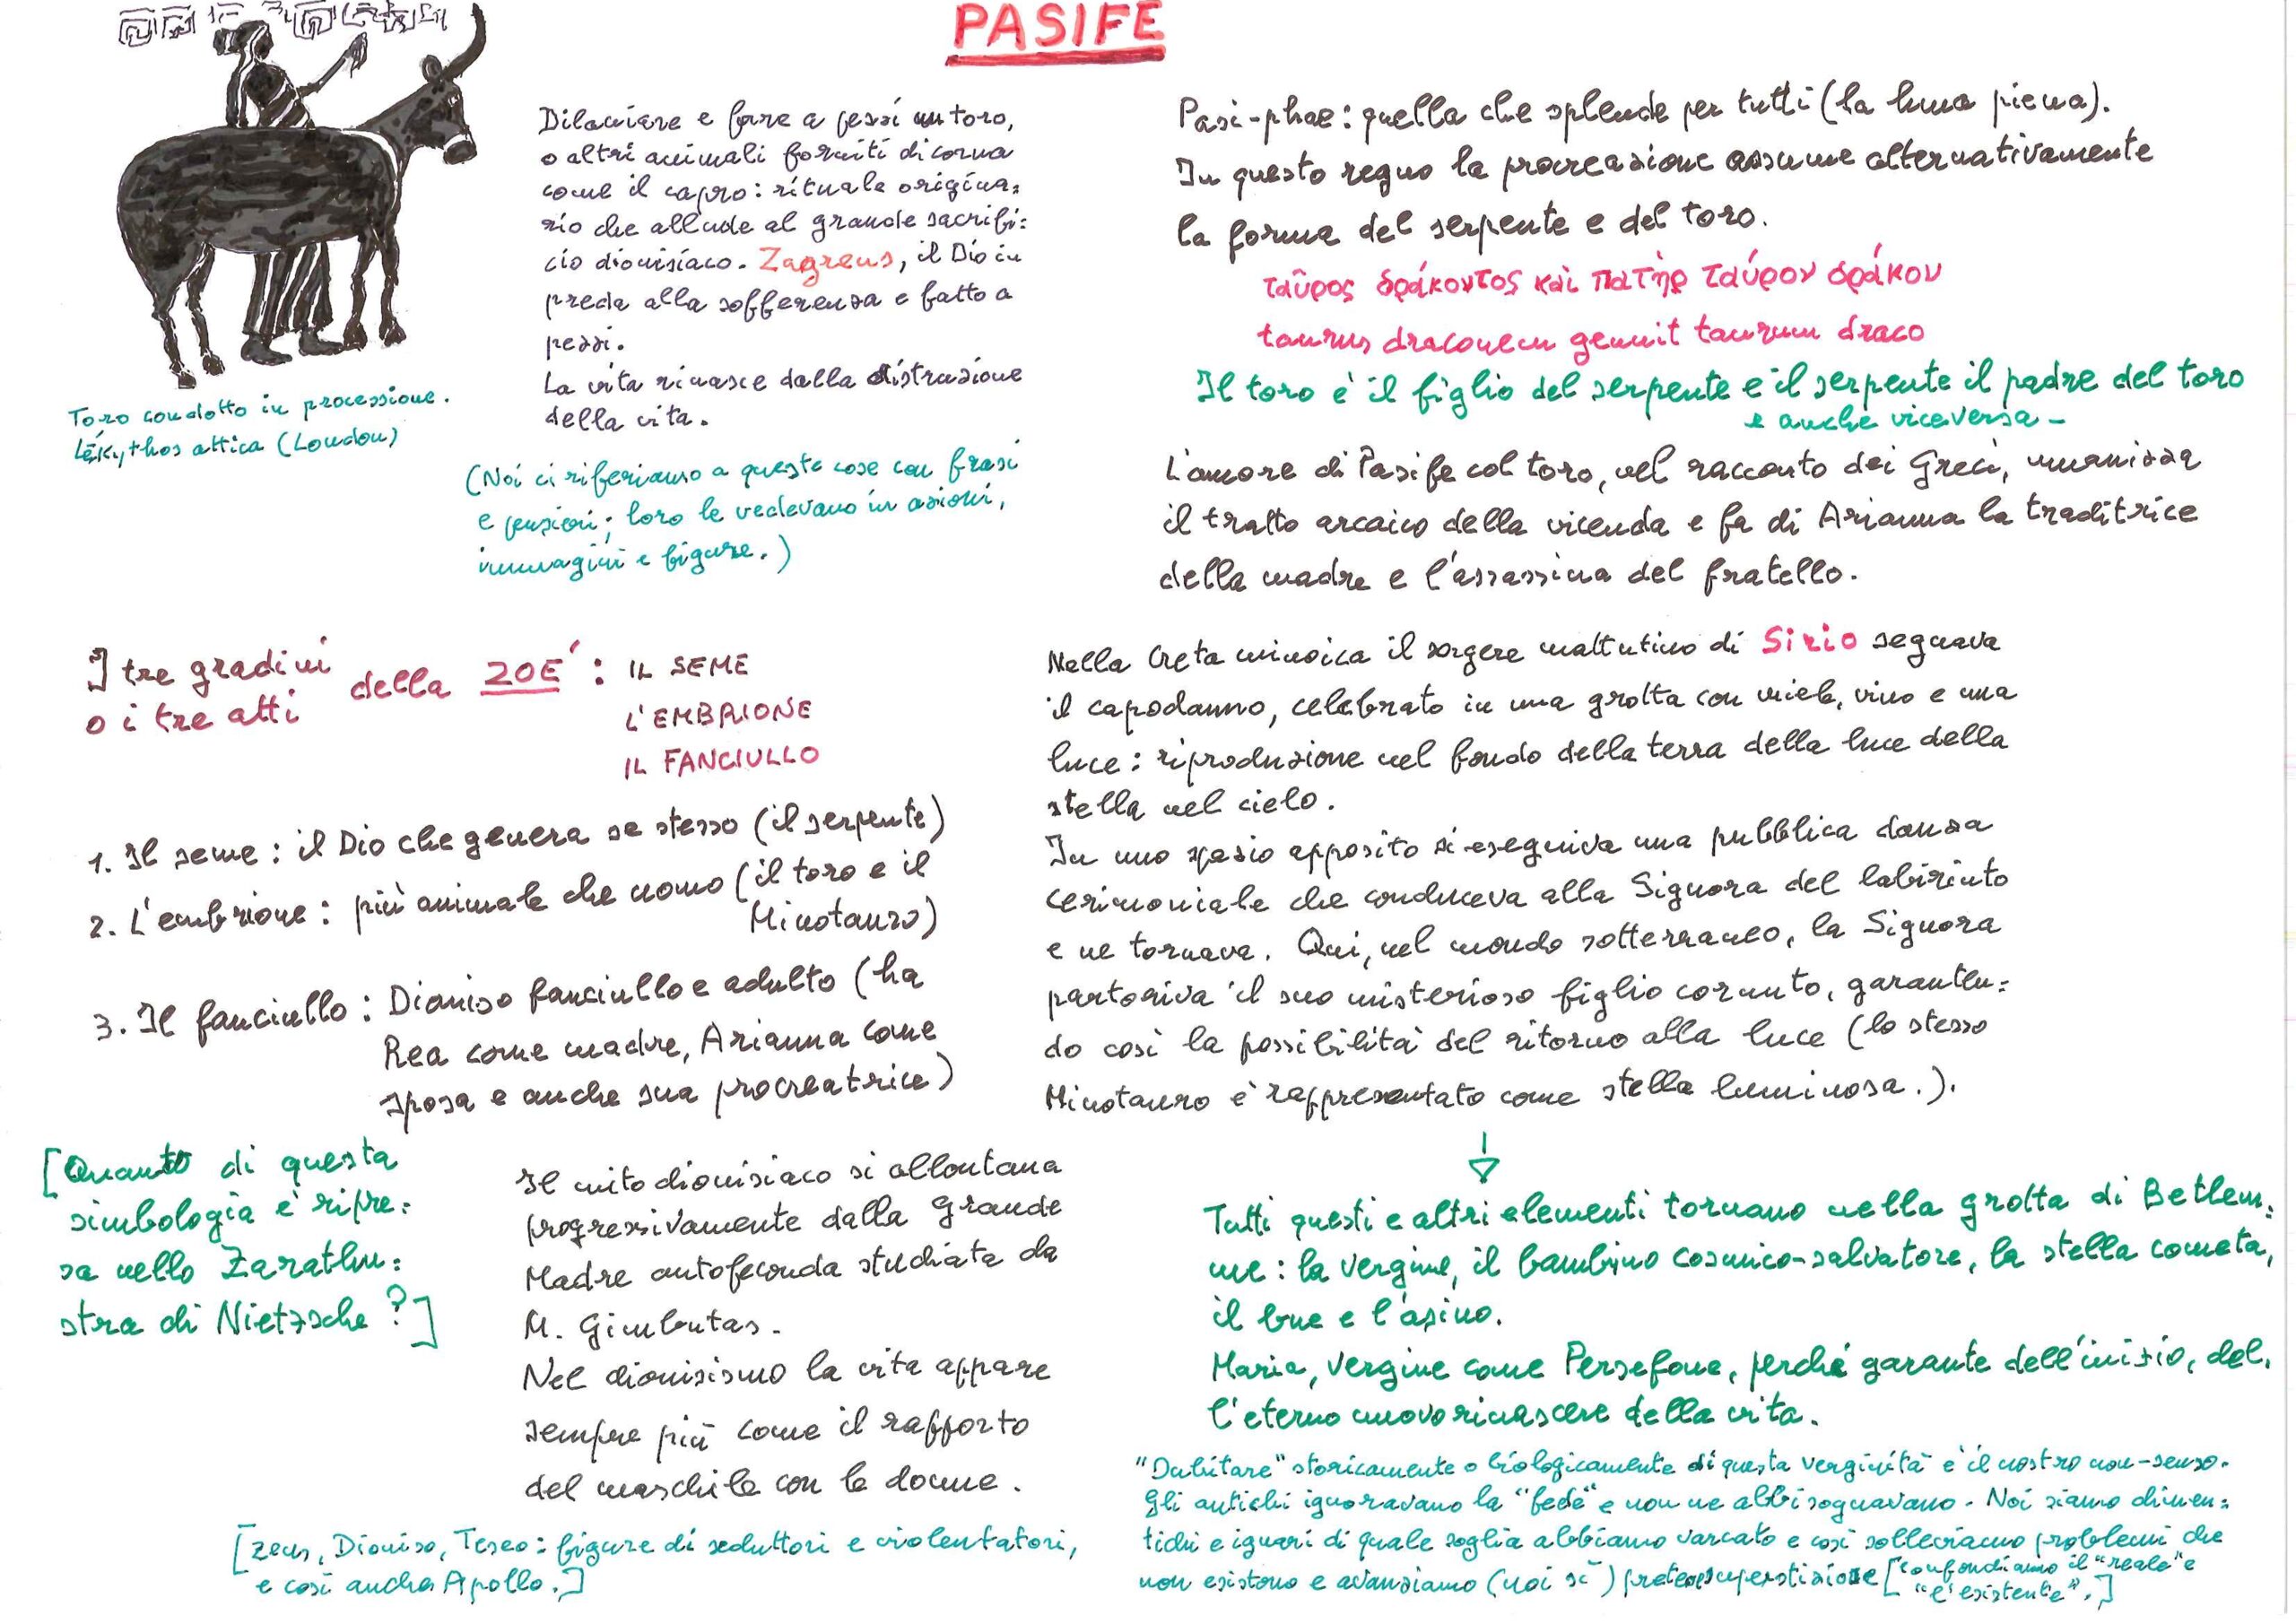 PASIFE
Dilaniare e fare a pezzi un toro,
o altri animali forniti di corna
come il capro: rituale origina=
rio che allude al grande sacrifi=
cio dionisiaco. Zagreus, il Dio in
preda alla sofferenza e fatto a
pezzi.
La vita rinasce dalla distruzione
della vita.
Toro condotto in processione.
Lékythos attica (London)
(Noi ci riferiamo a queste cose con frasi
e pensieri; loro le vedevano in azioni,
immagini e figure.)
I tre gradini
o i tre atti
della ZOE´:
IL SEME
L'EMBRIONE
IL FANCIULLO
1. Il seme: il Dio che genera se stesso (il serpente)
2. L'embrione: più animale che uomo (il toro e il
Minotauro)
3. Il fanciullo: Dioniso fanciullo e adulto (ha
Rea come madre, Arianna come
sposa e anche sua procreatrice)
[Quanto di questa
simbologia è ripre=
sa nello Zarathu=
stra di Nietzsche?]
Il mito dionisiaco si allontana
progressivamente dalla Grande
Madre autofeconda studiata da
M. Gimbutas.
Nel dionisismo la vita appare
sempre più come il rapporto
del maschile con le donne.
[Zeus, Dioniso, Teseo: figure di seduttori e violentatori,
e così anche Apollo.]
Pasi-phae: quella che splende per tutti (la luna piena).
In questo regno la procreazione assume alternativamente
la forma del serpente e del toro.
ταῦρος δράκοντος καὶ πατὴρ ταύρου δράκων
taurus draconem genuit taurum draco
Il toro è il figlio del serpente e il serpente il padre del toro
e anche viceversa -
L'amore di Pasife col toro, nel racconto dei Greci, umanizza
il tratto arcaico della vicenda e fa di Arianna la traditrice
della madre e l'assassina del fratello.
Nella Creta minoica il sorgere mattutino di Sirio segnava
il capodanno, celebrato in una grotta con miele, vino e una
luce: riproduzione nel fondo della terra della luce della
stella nel cielo.
In uno spazio apposito si eseguiva una pubblica danza
cerimoniale che conduceva alla Signora del labirinto
e ne tornava. Qui, nel mondo sotterraneo, la Signora
partoriva il suo misterioso figlio cornuto, garanten=
do così la possibilità del ritorno alla luce (lo stesso
Minotauro è rappresentato come stella luminosa.).
Tutti questi e altri elementi tornano nella grotta di Betlem=
me: la vergine, il bambino cosmico-salvatore, la stella cometa,
il bue e l'asino.
Maria, vergine come Persefone, perché garante dell'inizio, del=
l'eterno nuovo rinascere della vita.
"Dubitare" storicamente o biologicamente di questa verginità è il nostro non-senso.
Gli antichi ignoravano la "fede" e non ne abbisognavano. Noi siamo dimen=
tichi e ignari di quale soglia abbiamo varcato e così solleviamo problemi che
non esistono e avanziamo (noi sì) pretese superstiziose [confondiamo il "reale" e
"l'esistente".]